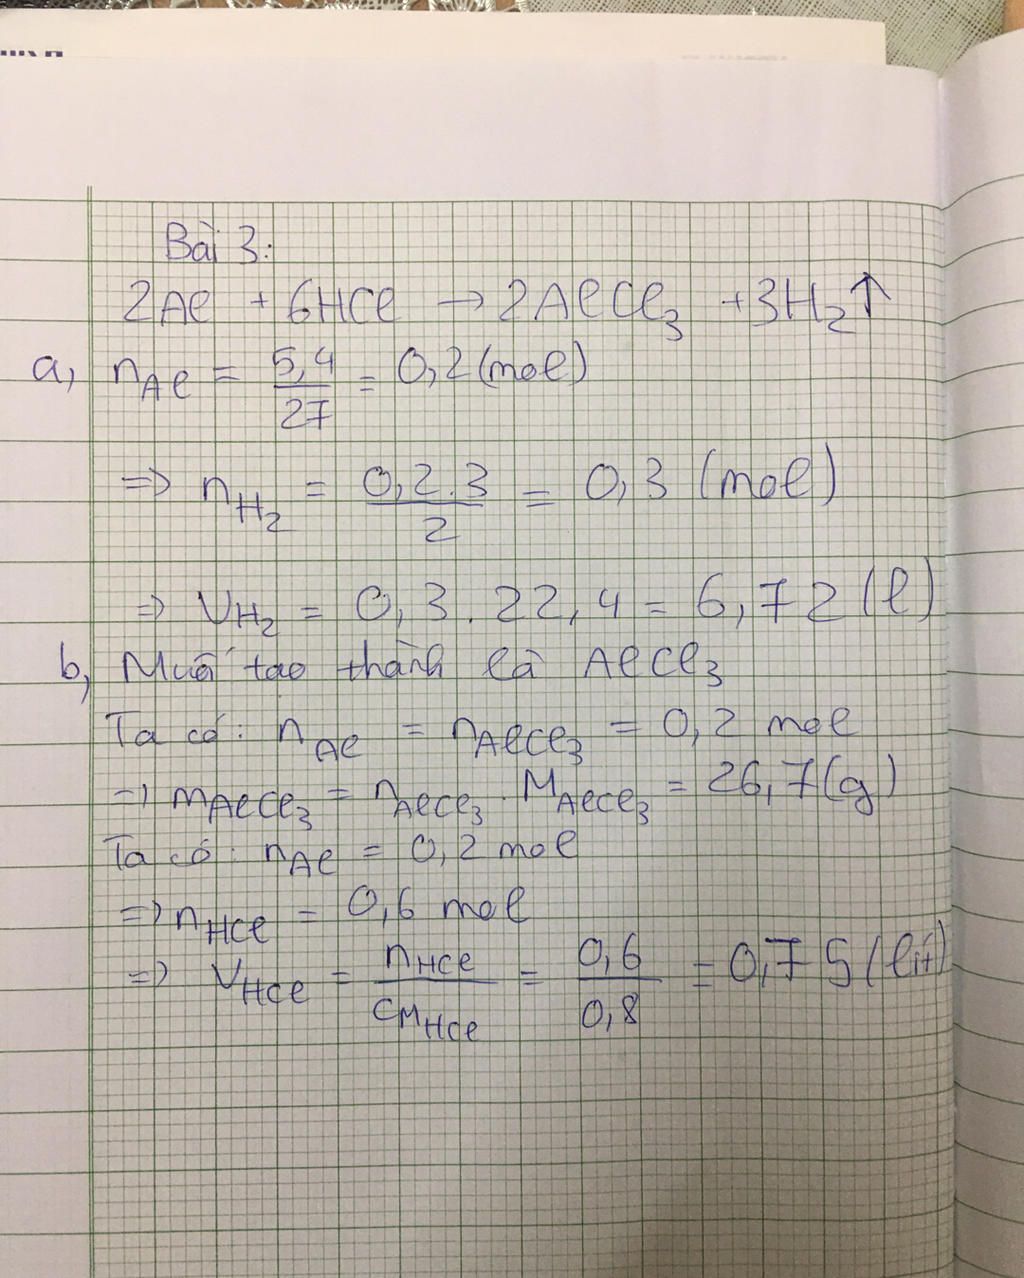 Bài 3:
2Al + 6HCl → 2AlCl₃ + 3H₂↑
a, nAl = 5,4/27 = 0,2 (mol)
=> nH₂ = 0,2.3/2 = 0,3 (mol)
=> VH₂ = 0,3 . 22,4 = 6,72 (l)
b, Muối tạo thành là AlCl₃
Ta có: nAl = nAlCl₃ = 0,2 mol
=> mAlCl₃ = nAlCl₃ . MAlCl₃ = 26,7 (g)
Ta có: nAl = 0,2 mol
=> nHCl = 0,6 mol
=> VHCl = nHCl/CMHCl = 0,6/0,8 = 0,75 (lít)